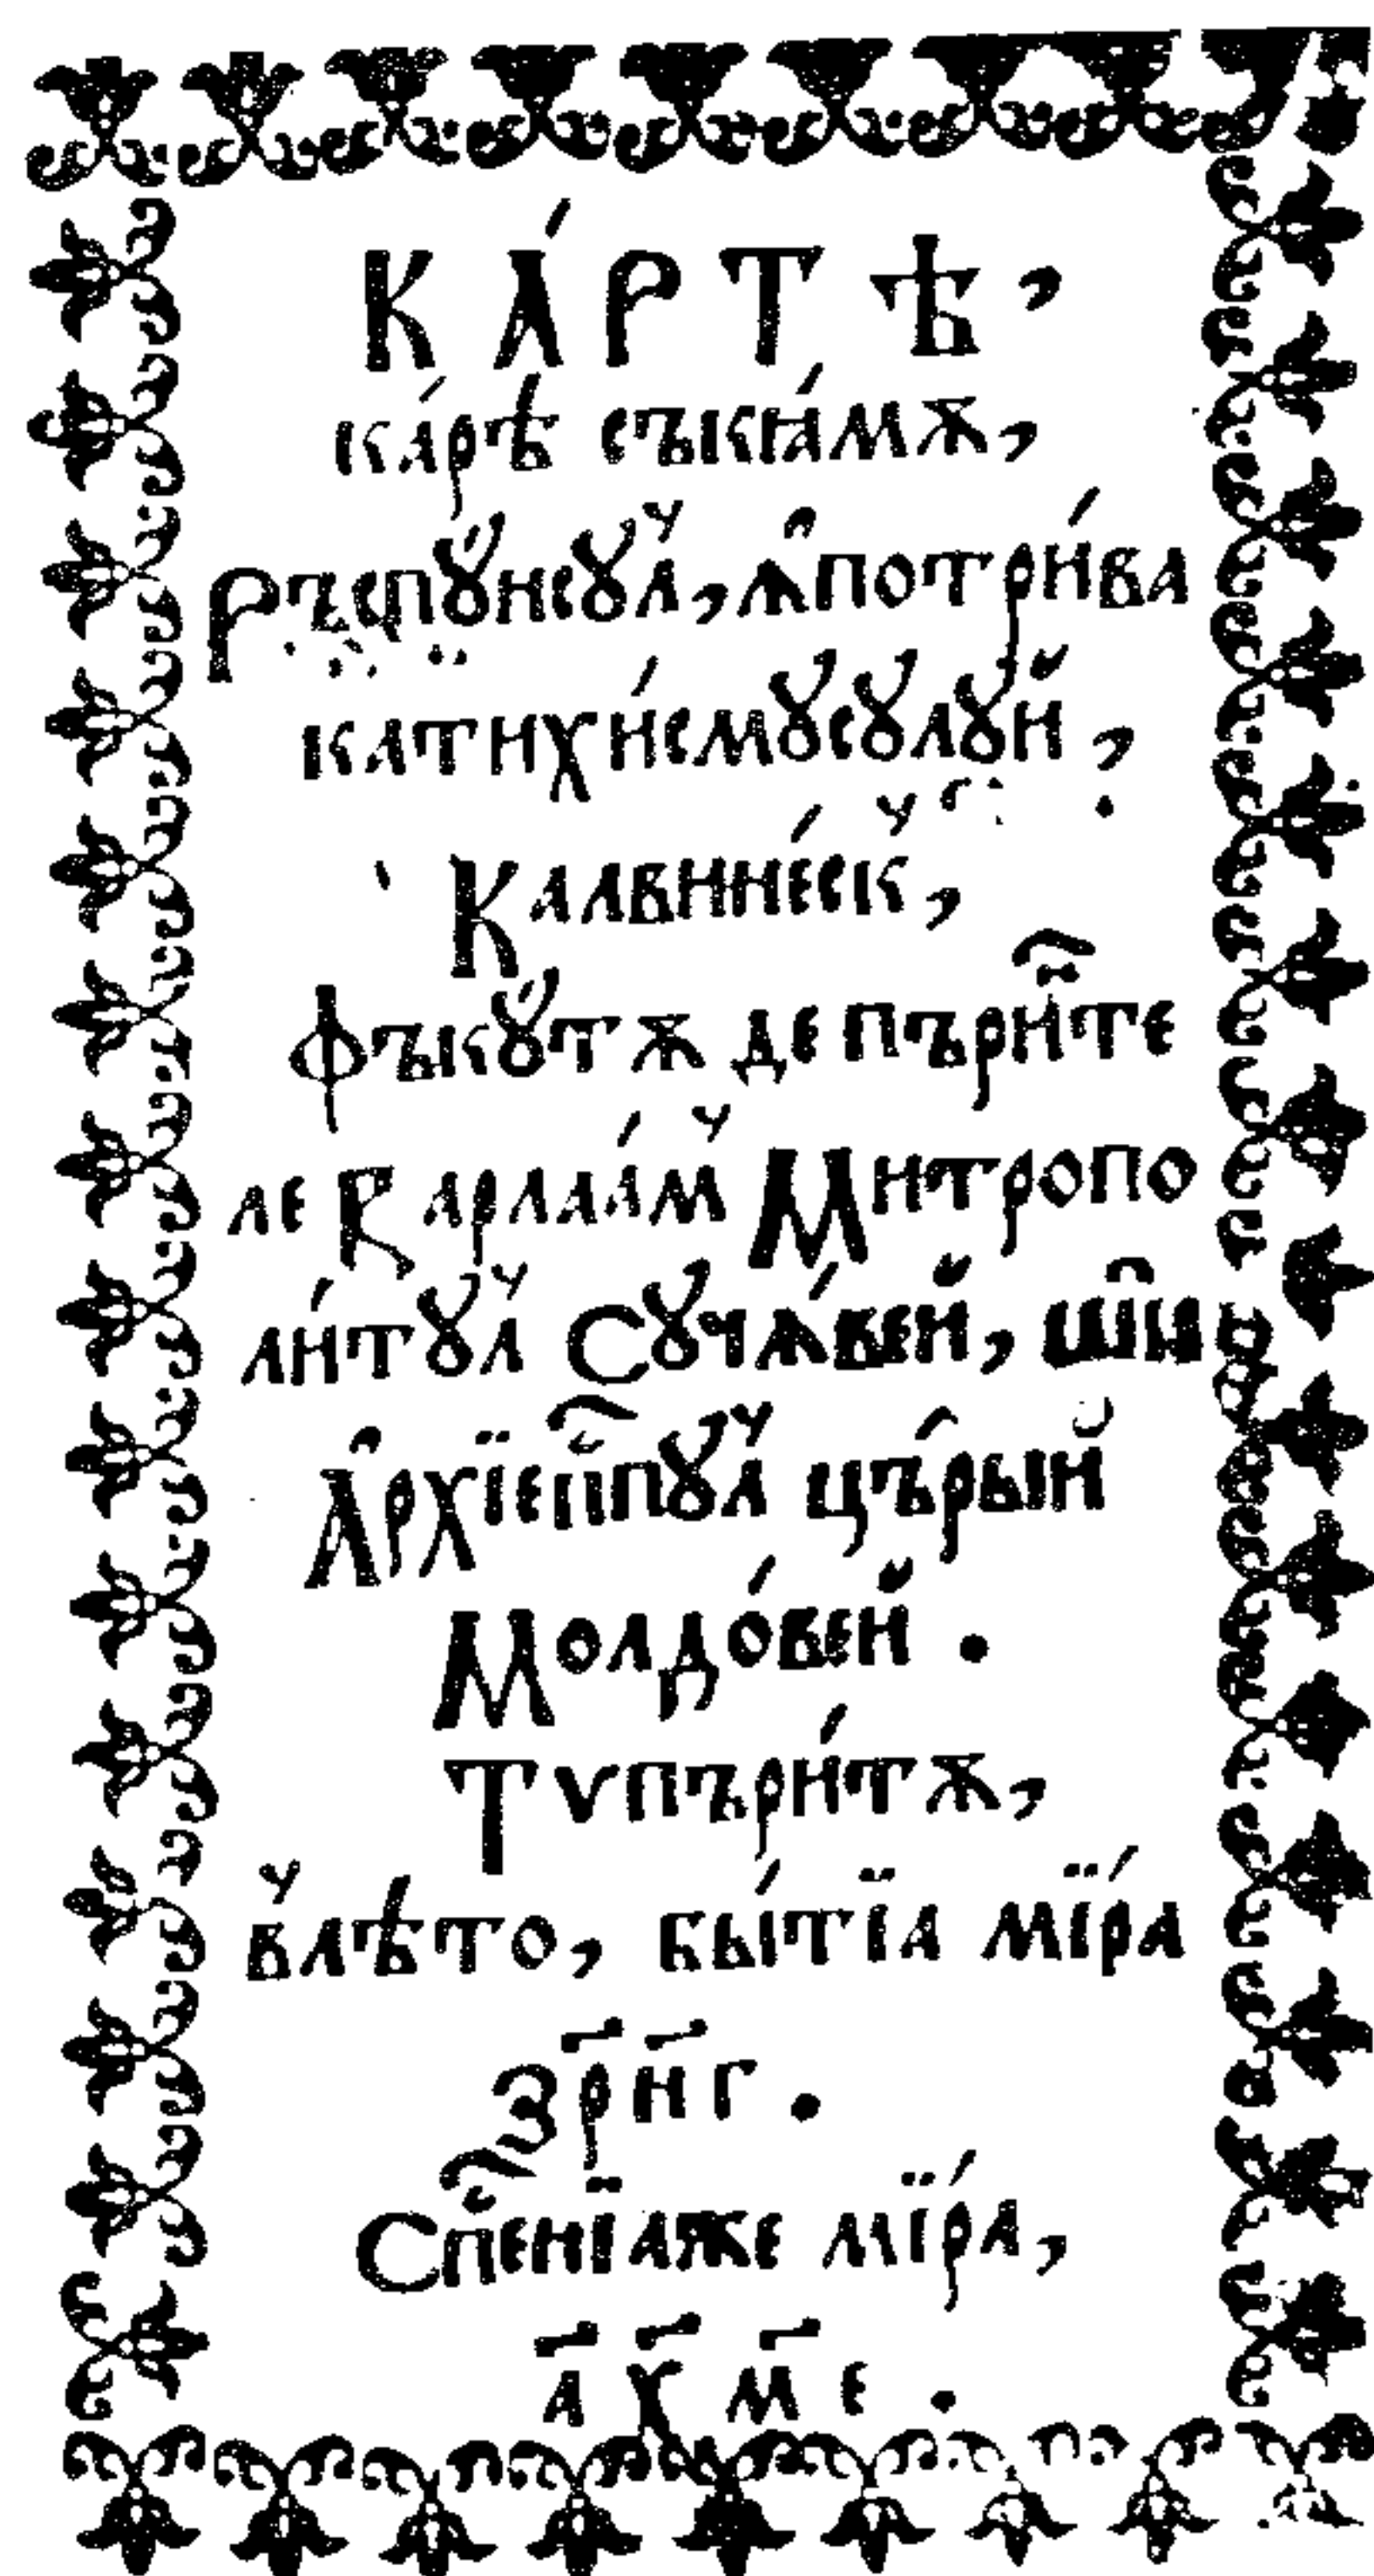 КА́РТѢ,
ка́рѣ съкіа́мѫ,
Ръспꙋ́нсꙋл, ꙟпотри́ва
катихи́смꙋсꙋлꙋй,
Калвине́ск,
Фъкꙋ́тѫ де пъри҃те
ле Варлаа́м Митропо
ли́тꙋл Сꙋчѧ́вей, шїи
А҆рхїеп҃пꙋл цъ́рый
Молдо́вей.
Тѵпъри́тѫ,
влѣто, бы́тїа мї́ра
зрнг.
Сп҃енїаже мї́ра,
ахме.